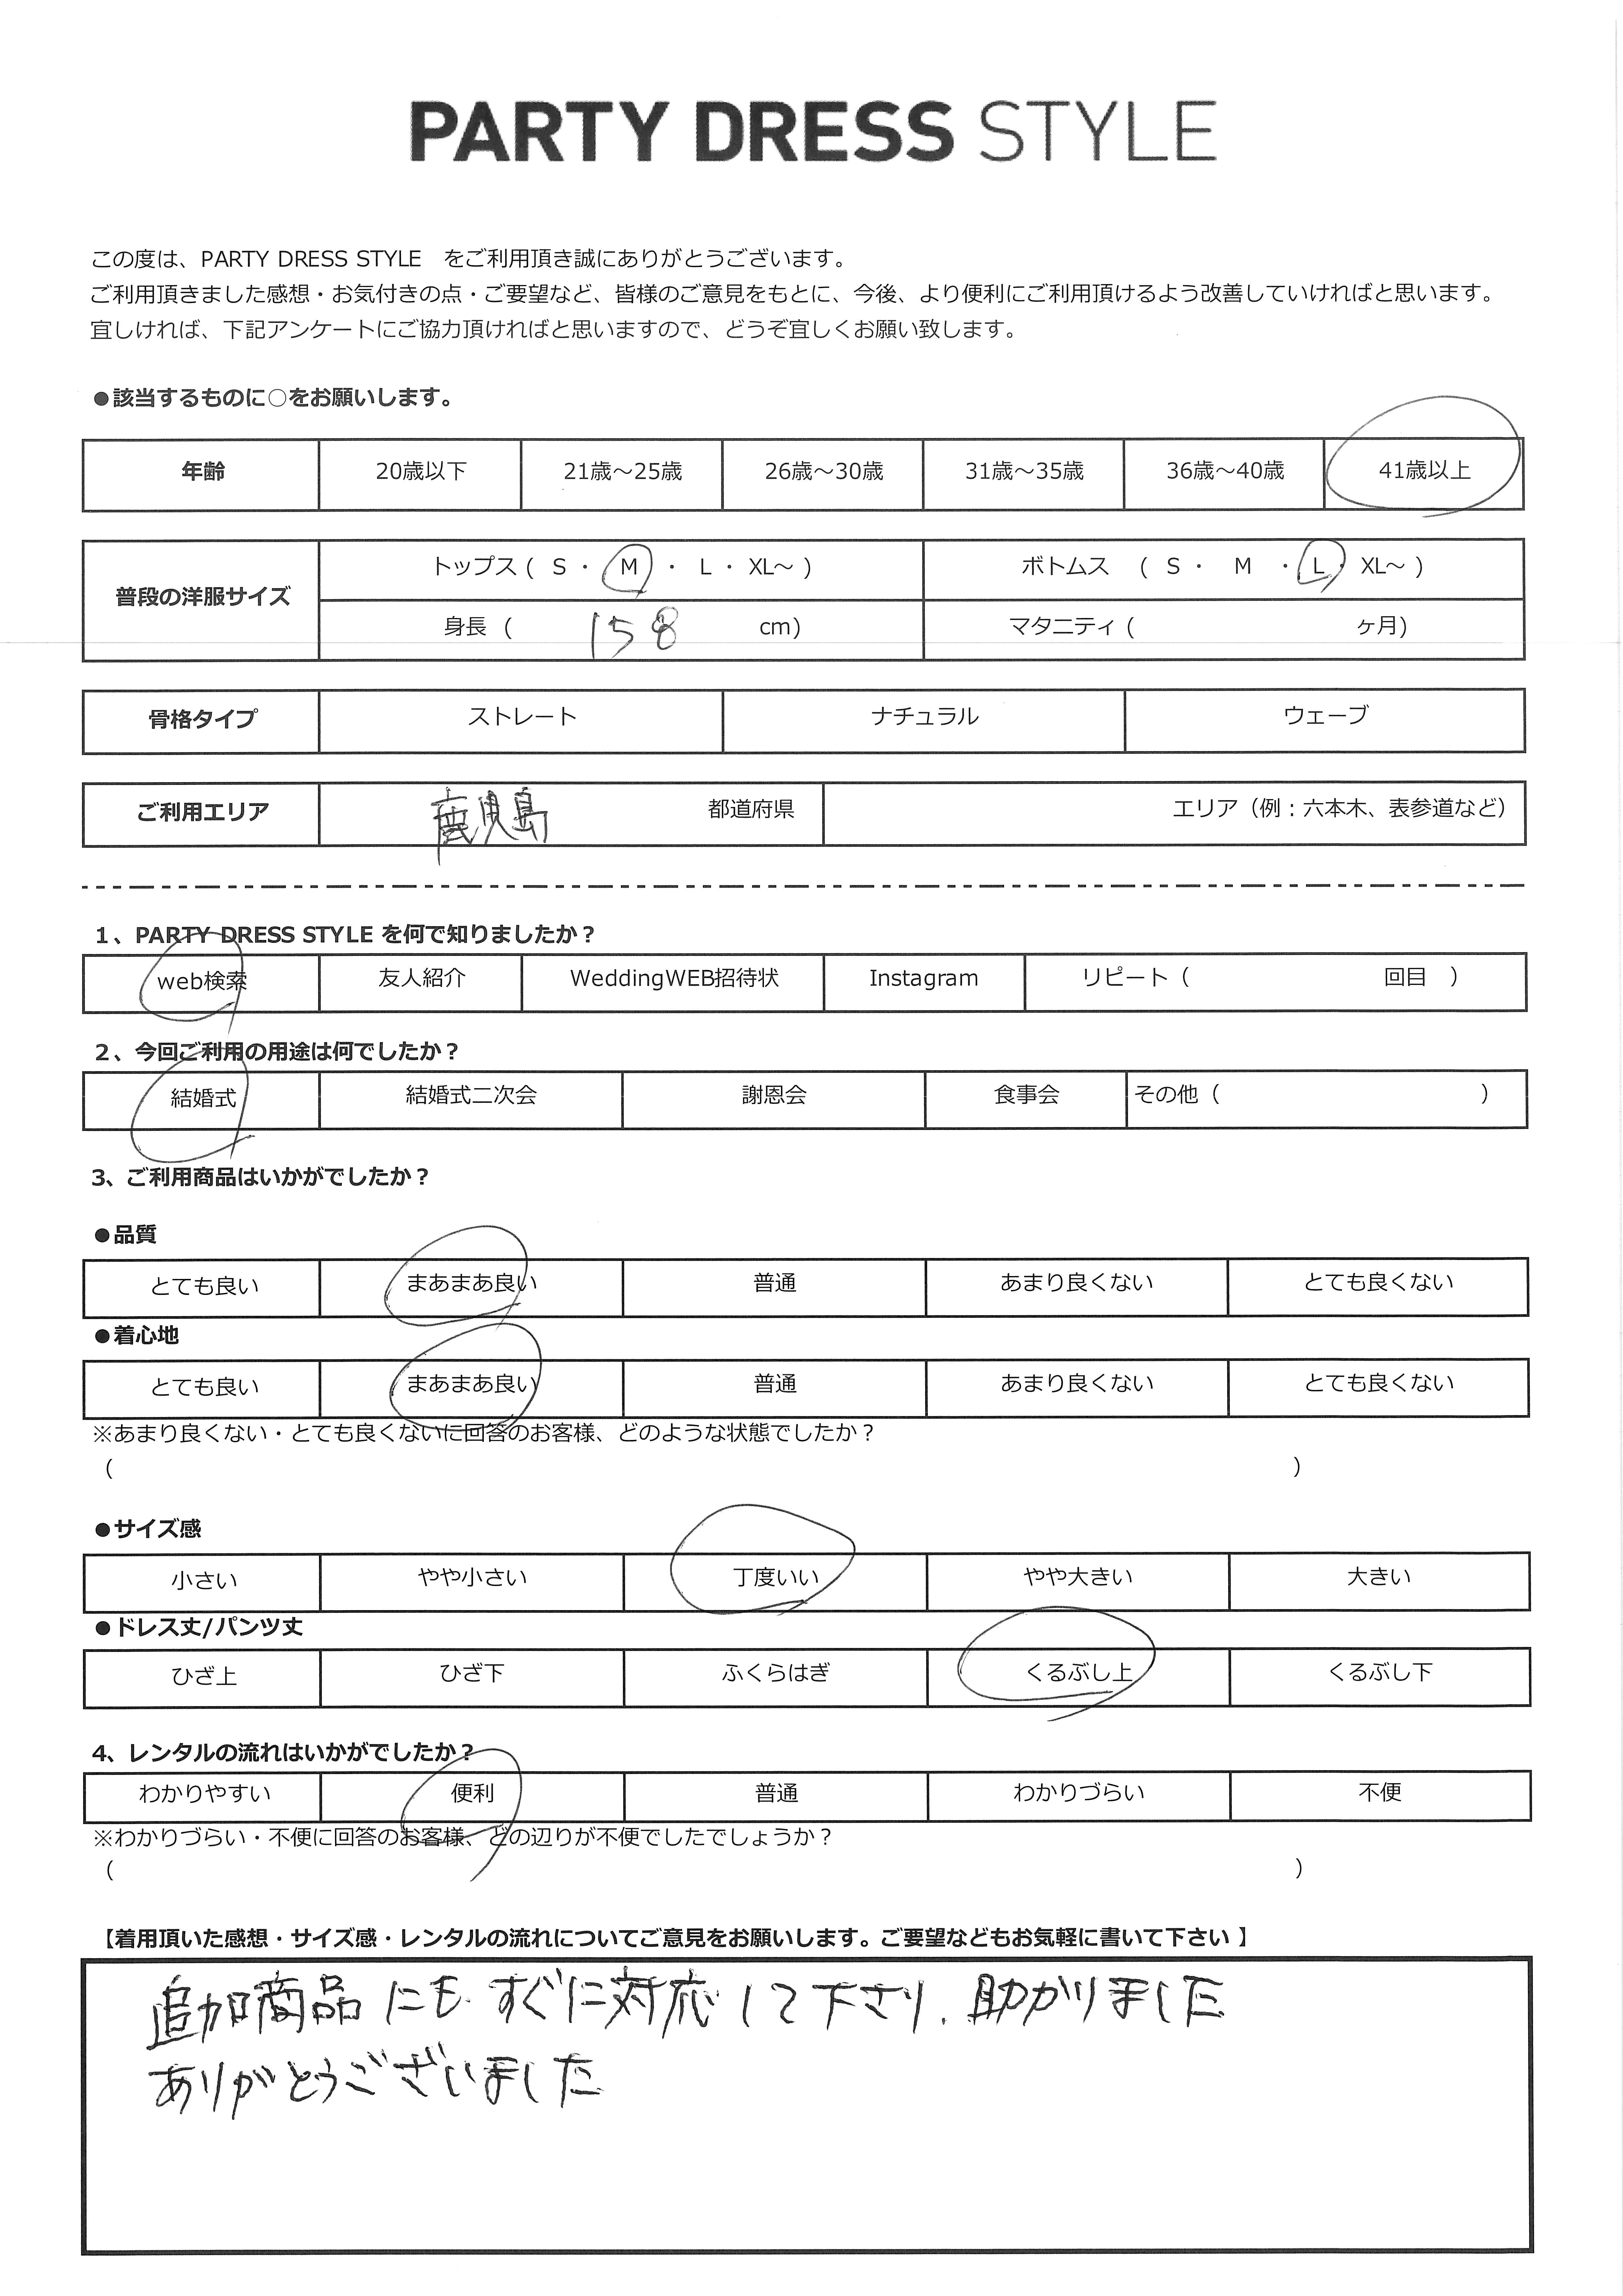 PARTY DRESS STYLE
この度は、PARTY DRESS STYLE をご利用頂き誠にありがとうございます。
ご利用頂きました感想・お気付きの点・ご要望など、皆様のご意見をもとに、今後、より便利にご利用頂けるよう改善していければと思います。
宜しければ、下記アンケートにご協力頂ければと思いますので、どうぞ宜しくお願い致します。
●該当するものに○をお願いします。
年齢 20歳以下 21歳～25歳 26歳～30歳 31歳～35歳 36歳～40歳 41歳以上
普段の洋服サイズ トップス ( S ・ M ・ L ・ XL～ ) ボトムス ( S ・ M ・ L ・ XL～ )
身長 ( 158 cm) マタニティ ( ヶ月)
骨格タイプ ストレート ナチュラル ウェーブ
ご利用エリア 鹿児島 都道府県 エリア（例：六本木、表参道など）
1、PARTY DRESS STYLE を何で知りましたか？
web検索 友人紹介 WeddingWEB招待状 Instagram リピート（ 回目 ）
2、今回ご利用の用途は何でしたか？
結婚式 結婚式二次会 謝恩会 食事会 その他（ ）
3、ご利用商品はいかがでしたか？
●品質
とても良い まあまあ良い 普通 あまり良くない とても良くない
●着心地
とても良い まあまあ良い 普通 あまり良くない とても良くない
※あまり良くない・とても良くないに回答のお客様、どのような状態でしたか？
（ ）
●サイズ感
小さい やや小さい 丁度いい やや大きい 大きい
●ドレス丈/パンツ丈
ひざ上 ひざ下 ふくらはぎ くるぶし上 くるぶし下
4、レンタルの流れはいかがでしたか？
わかりやすい 便利 普通 わかりづらい 不便
※わかりづらい・不便に回答のお客様、どの辺りが不便でしたでしょうか？
（ ）
【着用頂いた感想・サイズ感・レンタルの流れについてご意見をお願いします。ご要望などもお気軽に書いて下さい 】
追加商品にもすぐに対応して下さり、助かりました
ありがとうございました